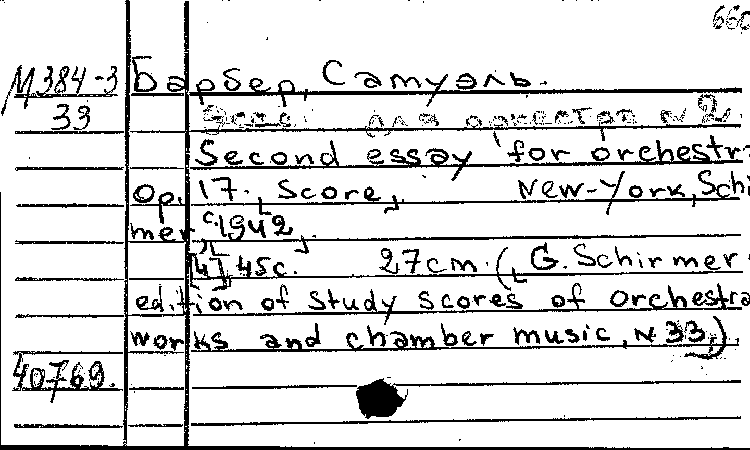 660
М384-3 Барбер, Самуэль.
33 Эссе для оркестра №2.
Second essay for orchestra
Op. 17. [Score] New-York, Schi
mer, c. 1942].
[4], 45c. 27cm. (G. Schirmer
edition of study scores of orchestra
works and chamber music, N 33.)
40769.